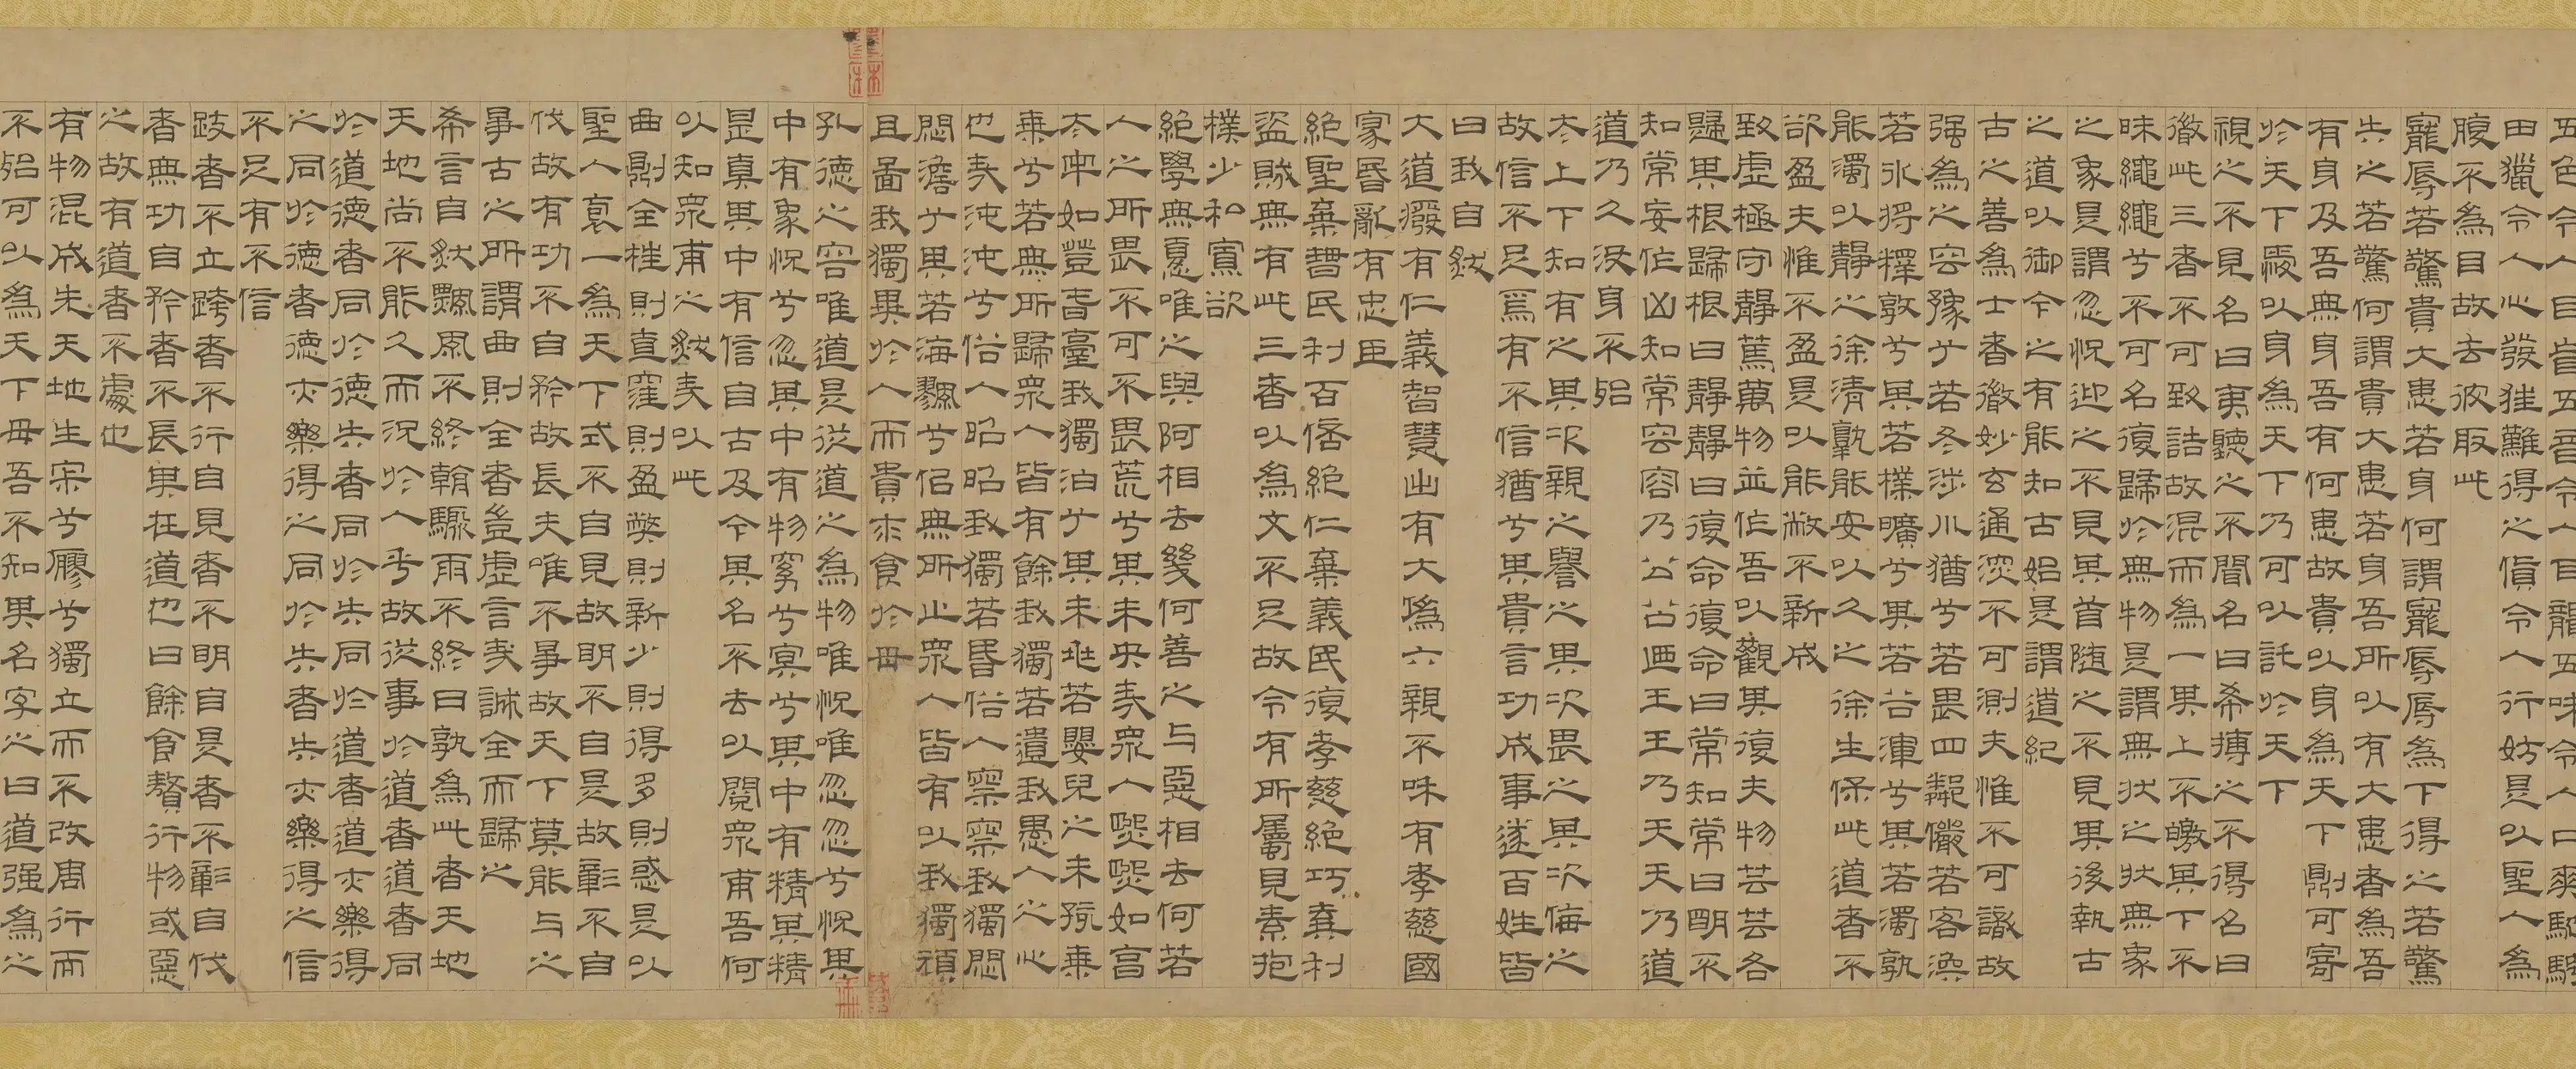 五色令人目盲五音令人耳聾五味令人口爽馳騁
田獵令人心發狂難得之貨令人行妨是以聖人為
腹不為目故去彼取此
寵辱若驚貴大患若身何謂寵辱辱為下得之若驚
失之若驚何謂貴大患若身吾所以有大患者為吾
有身及吾無身吾有何患故貴以身為天下則可寄
於天下愛以身為天下乃可以託於天下
視之不見名曰夷聽之不聞名曰希搏之不得名曰
微此三者不可致詰故混而為一其上不皦其下不
昧繩繩兮不可名復歸於無物是謂無狀之狀無象
之象是謂忽恍迎之不見其首隨之不見其後執古
之道以御今之有能知古始是謂道紀
古之善為士者微妙玄通深不可測夫惟不可識故
强為之容豫兮若冬涉川猶兮若畏四鄰儼若客渙
若冰將釋敦兮其若樸曠兮其若谷渾兮其若濁孰
能濁以靜之徐清孰能安以久之徐生保此道者不
欲盈夫惟不盈是以能敝不新成
致虛極守靜篤萬物並作吾以觀其復夫物芸芸各
歸其根歸根曰靜靜曰復命復命曰常知常曰明不
知常妄作凶知常容容乃公公乃王王乃天天乃道
道乃久沒身不殆
太上下知有之其次親之譽之其次畏之其次侮之
故信不足焉有不信猶兮其貴言功成事遂百姓皆
曰我自然
大道癈有仁義智慧出有大偽六親不咊有孝慈國
家昬亂有忠臣
絕聖棄智民利百倍絕仁棄義民復孝慈絕巧棄利
盜賊無有此三者以為文不足故令有所屬見素抱
樸少私寡欲
絕學無憂唯之與阿相去幾何善之与惡相去何若
人之所畏不可不畏荒兮其未央哉眾人熙熙如享
太牢如登春臺我獨泊兮其未兆若嬰兒之未孩乗
乗兮若無所歸眾人皆有餘我獨若遺我愚人之心
也哉沌沌兮俗人昭昭我獨若昬俗人察察我獨悶
悶澹兮其若海飂兮似無所止眾人皆有以我獨頑
且啚我獨異於人而貴求食於母
孔德之容唯道是從道之為物唯恍唯忽忽兮恍其
中有象恍兮忽其中有物窈兮冥兮其中有精其精
是真其中有信自古及今其名不去以閱眾甫吾何
以知眾甫之然哉以此
曲則全枉則直窪則盈弊則新少則得多則惑是以
聖人裒一為天下式不自見故明不自是故彰不自
伐故有功不自矜故長夫唯不爭故天下莫能与之
爭古之所謂曲則全者豈虛言哉誠全而歸之
希言自然飄風不終朝驟雨不終日孰為此者天地
天地尚不能久而況於人乎故從事於道者道者同
於道德者同於德失者同於失同於道者道亦樂得
之同於德者德亦樂得之同於失者失亦樂得之信
不足有不信
跂者不立跨者不行自見者不明自是者不彰自伐
者無功自矜者不長其在道也曰餘食贅行物或惡
之故有道者不處也
有物混成先天地生宋兮廫兮獨立而不改周行而
不殆可以為天下母吾不知其名字之曰道强為之